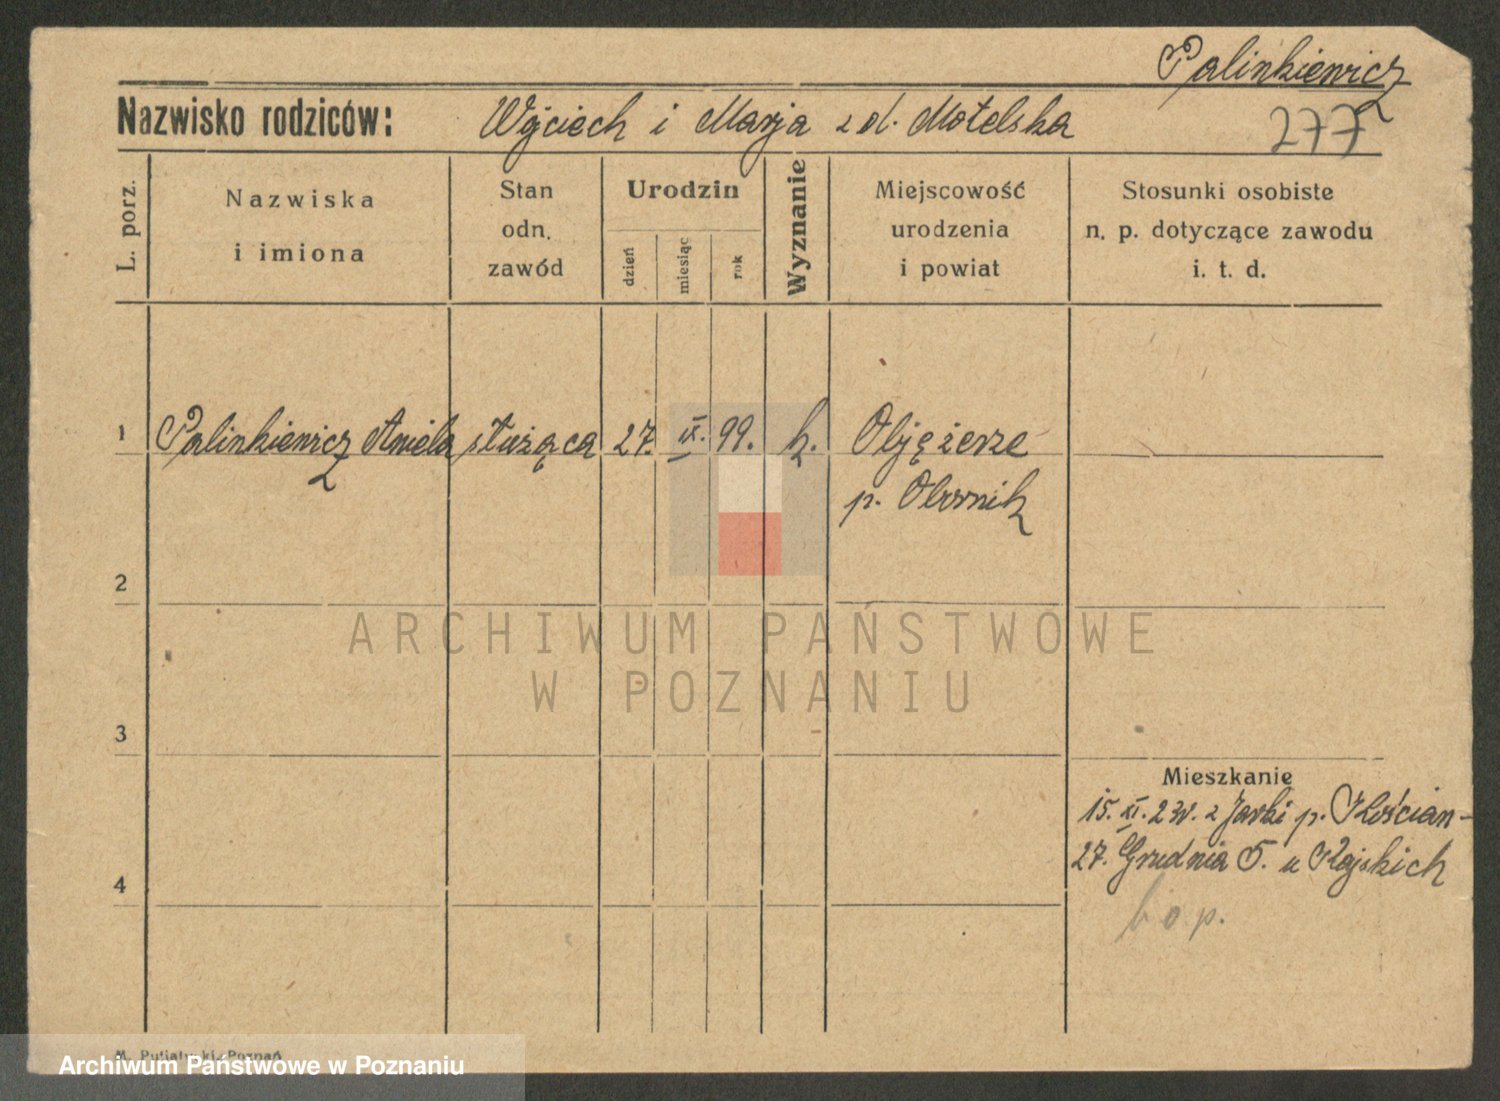 Palinkiewicz
Nazwisko rodziców: Wojciech i Marja z d. Motelska
277
L. porz.
Nazwiska
i imiona
Stan
odn.
zawód
Urodzin
dzień
miesiąc
rok
Wyznanie
Miejscowość
urodzenia
i powiat
Stosunki osobiste
n. p. dotyczące zawodu
i. t. d.
1 Palinkiewicz Aniela służąca 27. IX. 99. k. Objęzierze
p. Obornik
2
ARCHIWUM PAŃSTWOWE
W POZNANIU
3
Mieszkanie
15. XI. 23 r. z p. Kościan-
27. Grudnia 5. u Rajskich
4
b o p.
M. Putiatycki, Poznań
Archiwum Państwowe w Poznaniu